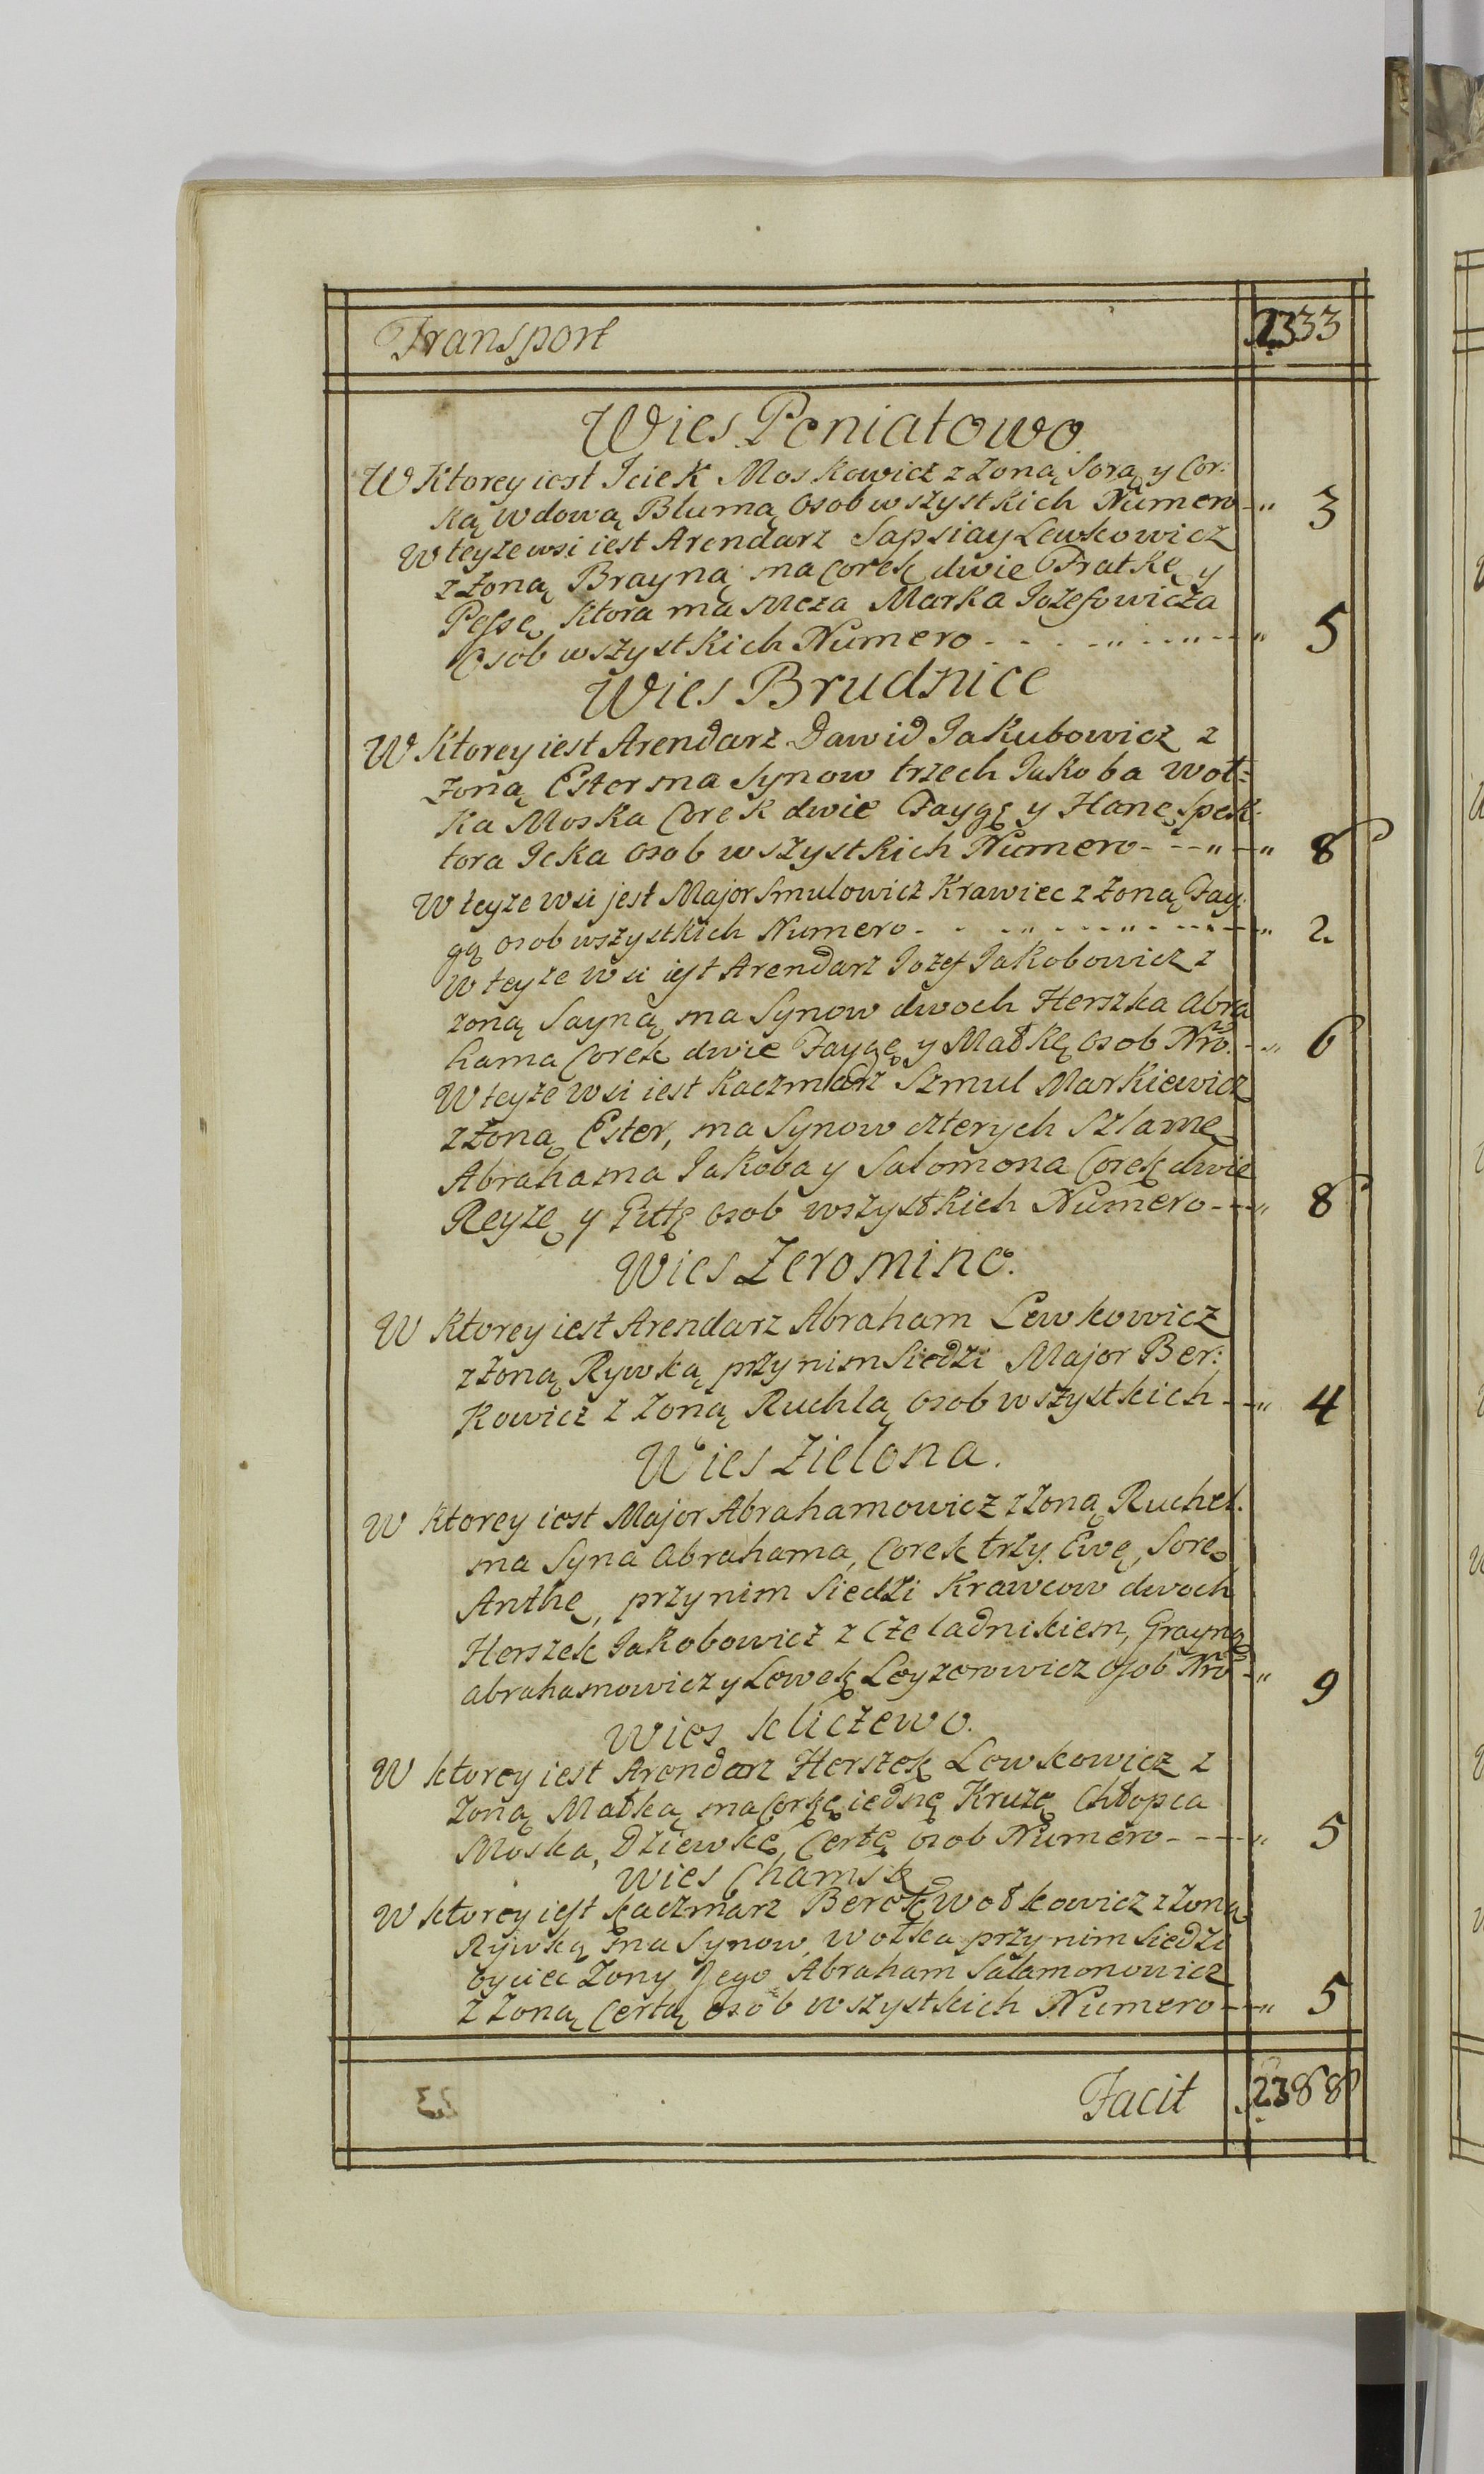 Transport 2333
Wies Poniatowo
W Ktorey iest Iciek Moskowicz z Zoną Sorą y Cor:
ką wdową Blumą Osob wszystkich Numero 3
W teyze wsi iest Arendarz Sapsiay Lewkowicz
z Zoną Brayną ma Corek dwie Fratkę y
Pessę ktora ma Męża Marka Jozefowicza
Osob wszystkich Numero 5
Wies Brudnice
W Ktorey iest Arendarz Dawid Jakubowicz z
Zoną Ester ma Synow trzech Jakoba Wol=
ka Moska Corek dwie Faygę y Hanę Spek:
tora Icka osob wszystkich Numero 8
W teyze wsi jest Major Smulowicz Krawiec z Zoną Fay:
gą osob wszystkich Numero 2.
W teyze wsi iest Arendarz Jozef Jakobowicz z
zoną Sayną ma Synow dwoch Herszka Abra
hama Corek dwie Faygę y Małkę Osob Nro. 6
W teyze wsi iest Kaczmarz Szmul Markiewicz
z Zoną Ester, ma Synow czterych Szlamę
Abrahama Jakoba y Salomona Corek dwie
Reyzę y Gittę osob wszystkich Numero 8
Wies Zeromino.
W Ktorey iest Arendarz Abraham Lewkowicz
z Zoną Rywką przy nim Siedzi Major Ber:
kowicz z Zoną Ruchlą osob wszystkich 4
Wies Zielona.
W Ktorey iest Major Abrahamowicz z Zoną Ruchel.
ma Syna Abrahama, Corek trzy. Ewę, Sorę
Anthę, przy nim Siedzi Krawcow dwoch
Herszek Jakobowicz z Czeladnikiem, Grayną
abrahamowicz y Lewek Leyzerowicz osob Nro 9
Wies Kliczewo.
W ktorey iest Arendarz Herszek Lewkowicz z
Zoną Małką ma Corkę iednę Kruzę Chłopca
Moska, Dziewkę, Certę osob Numero 5
Wies Chamsk
W ktorey iest Kaczmarz Berek Wolkowicz z Zoną
Rywką ma Synow, Wolka przy nim Siedzi
Oyciec Zony Jego Abraham Salamonowicz
z Zoną Certą osob wszystkich Numero 5
Facit 2388